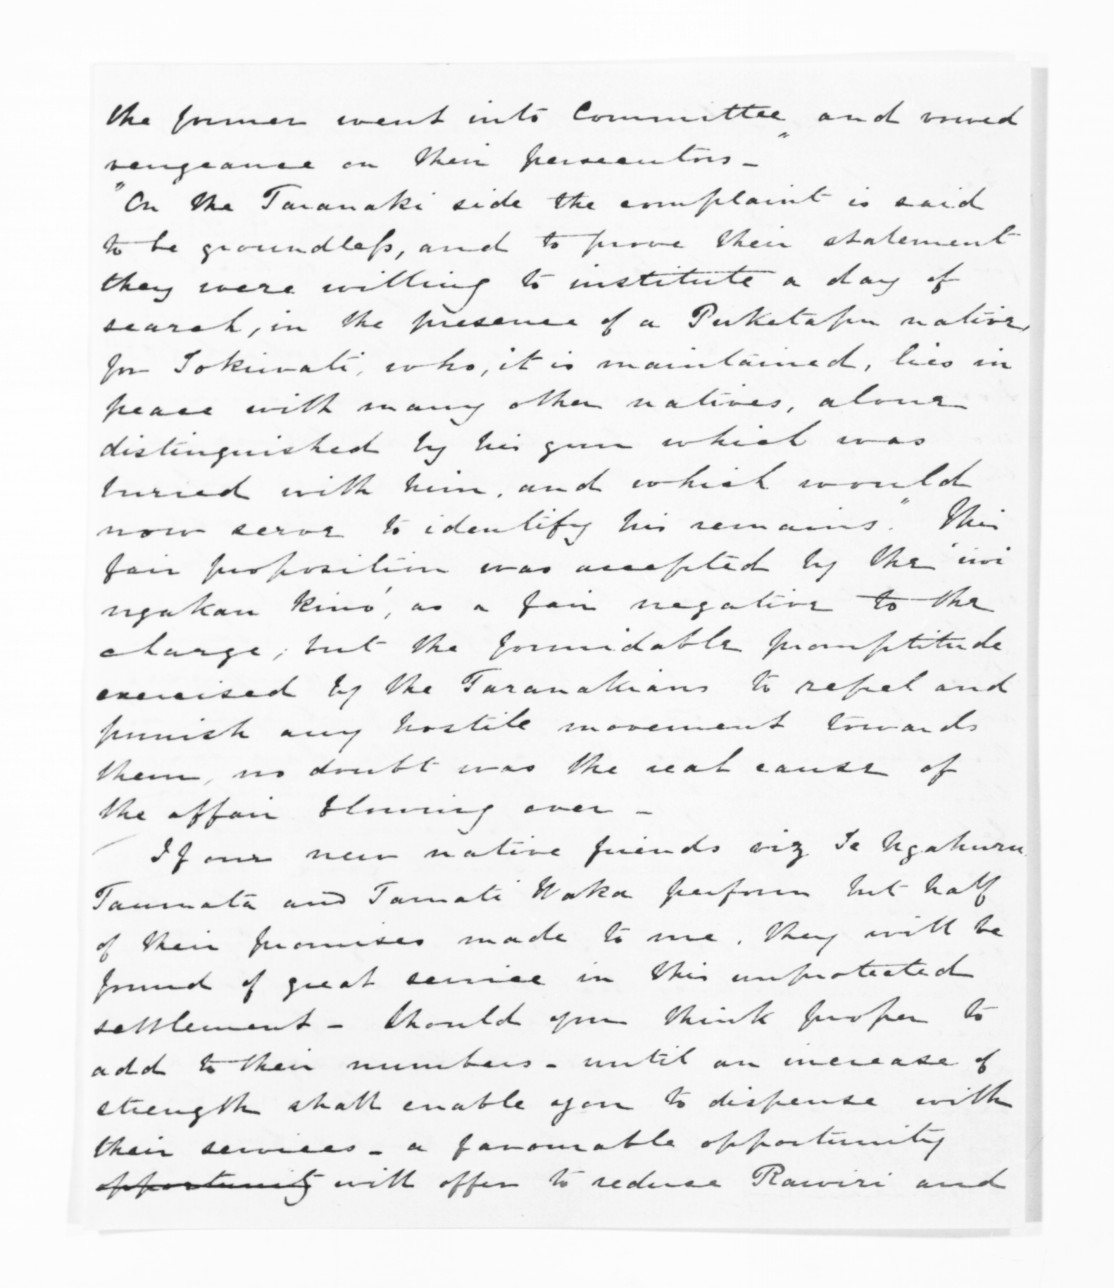 the former went into Committee, and vowed
vengeance on their persecutors -"
"On the Taranaki side the complaint is said
to be groundless, and to prove their statement
they were willing to institute a day of
search, in the presence of a Puketapu native,
for Tokiwati, who, it is maintained, lies in
peace with many other natives, alone
distinguished by his gun which was
buried with him, and which would
now serve to identify his remains." This
fair proposition was accepted by the 'iwi
ngakau kino', as a fair negative to the
charge; but the formidable promptitude
exercised by the Taranakians to repel and
punish any hostile movement towards
them, no doubt was the real cause of
the affair blowing over -
If our new native friends viz Te Ngahuru
Taumata and Tamati Waka perform but half
of their promises made to me, they will be
found of great service in this unprotected
settlement - Should you think proper to
add to their numbers - until an increase of
strength shall enable you to dispense with
their services - a favourable opportunity
opportunity will offer to reduce Rawiri and